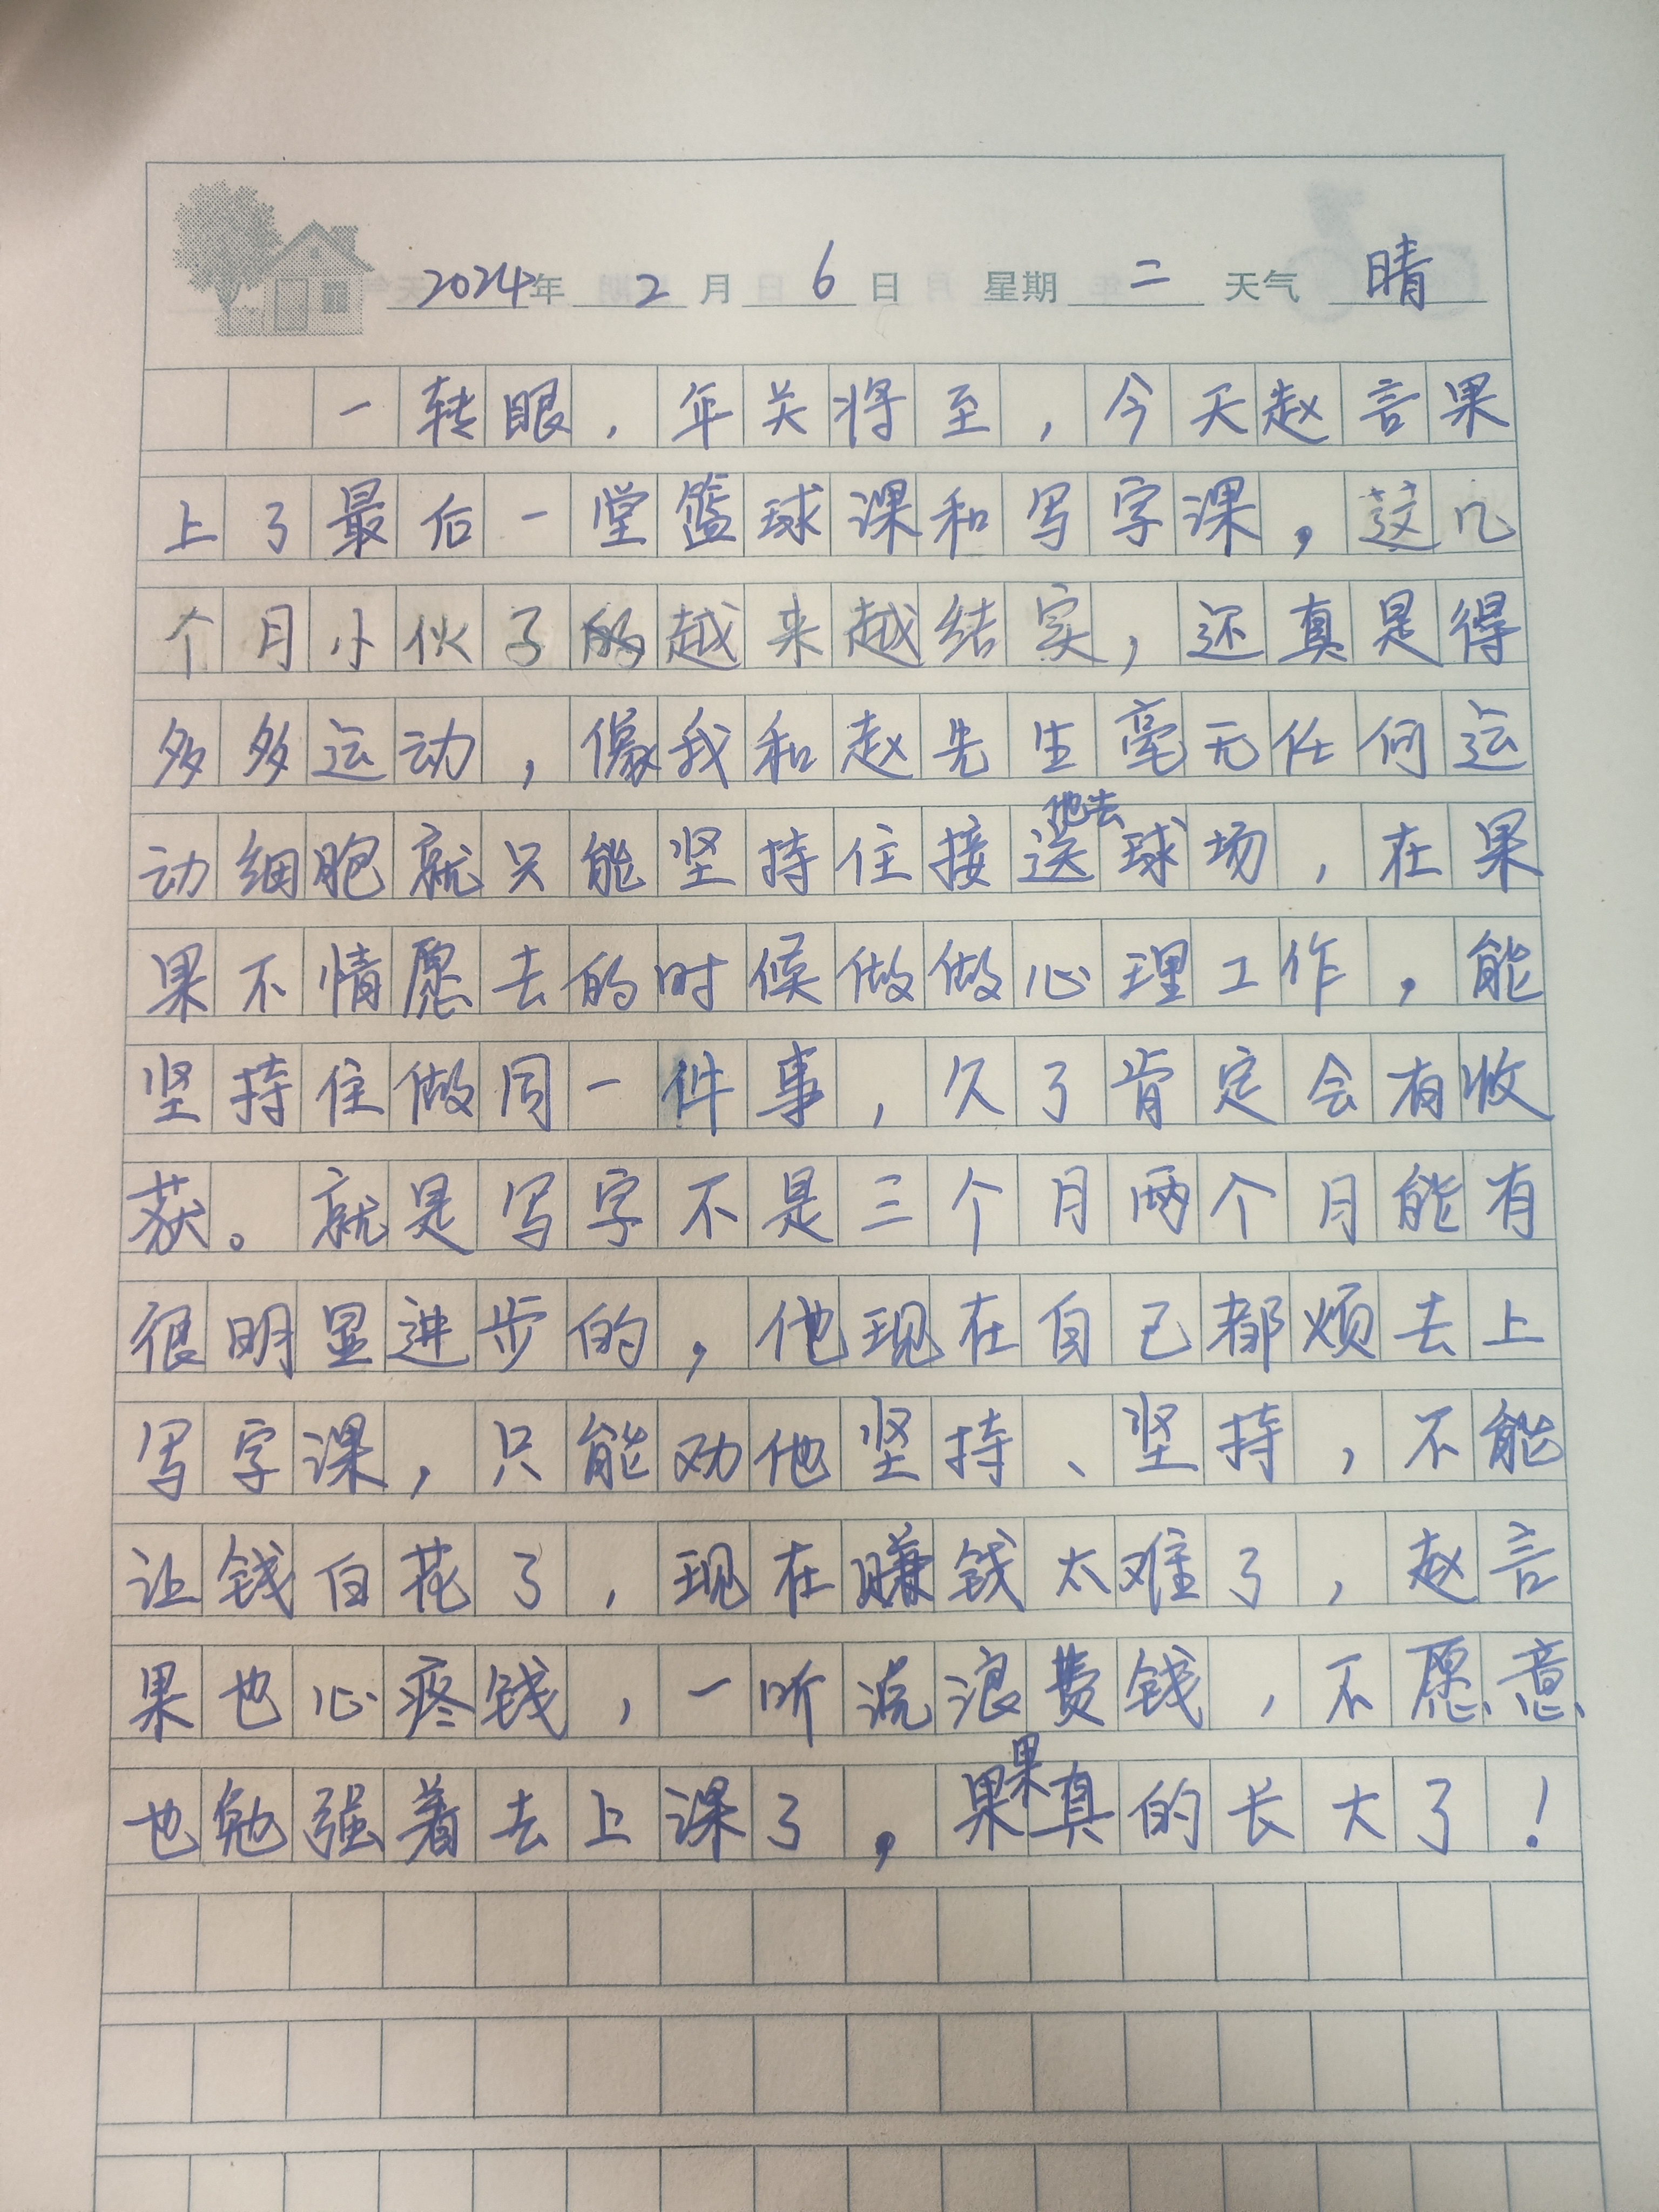 2024年 2月 6日 星期二 天气 晴
一转眼，年关将至，今天赵言果
上了最后一堂篮球课和写字课，这几
个月小伙子的越来越结实，还真是得
多多运动，像我和赵先生毫无任何运
动细胞就只能坚持住接送他去球场，在果
果不情愿去的时候做做心理工作，能
坚持住做同一件事，久了肯定会有收
获。就是写字不是三个月两个月能有
很明显进步的，他现在自己都烦去上
写字课，只能劝他坚持、坚持，不能
让钱白花了，现在赚钱太难了，赵言
果也心疼钱，一听说浪费钱，不愿意
也勉强着去上课了，果果真的长大了！